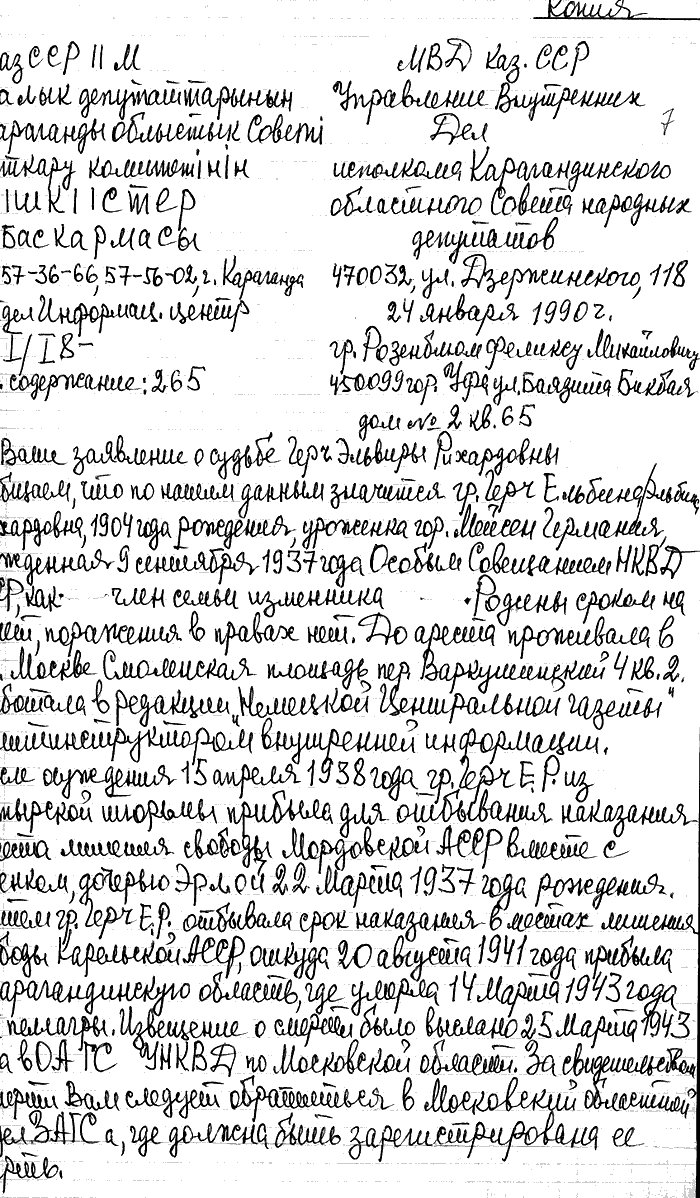 Копия
азССР IIМ МВД Каз. ССР
алык депутаттарынын Управление Внутренних
7
араганды облыстык Советi Дел
ткару комитетiнiн исполкома Карагандинского
IШКI IСТЕР областного Совета народных
БАСКАРМАСЫ депутатов
57-36-66, 57-56-02, г. Караганда 470032, ул. Дзержинского, 118
дел Информац. центр 24 января 1990 г.
I/I8- гр. Розенблюм Феликсу Михайловичу
. содержание: 265 450099 гор. Уфа ул. Баязита Бикбая
дом № 2 кв. 65
Ваше заявление о судьбе Герч Эльвиры Рихардовны
бщаем, что по нашим данным значится гр. Герч Ельбина/Эльбин
хардовна, 1904 года рождения, уроженка гор. Мейсен Германия,
жденная 9 сентября 1937 года Особым Совещанием НКВД
Р, как член семьи изменника Родины сроком на
лей, поражения в правах нет. До ареста проживала в
. Москве Смоленская площадь пер. 4 кв. 2.
ботала в редакции „Немецкой Центральной газеты"
литинструктором внутренней информации.
сле осуждения 15 апреля 1938 года гр. Герч Е.Р. из
тырской тюрьмы прибыла для отбывания наказания
еста лишения свободы Мордовской АССР вместе с
енком, дочерью Эрмой 22 марта 1937 года рождения.
тем гр. Герч Е.Р. отбывала срок наказания в местах лишения
боды Карельской АССР, откуда 20 августа 1941 года прибыла
арагандинскую область, где умерла 14 марта 1943 года
пеллагры. Извещение о смерти было выслано 25 марта 1943
а в ОАГС УНКВД по Московской области. За свидетельством
мерти Вам следует обратиться в Московский областной
дел ЗАГСа, где должна быть зарегистрирована ее
рть.